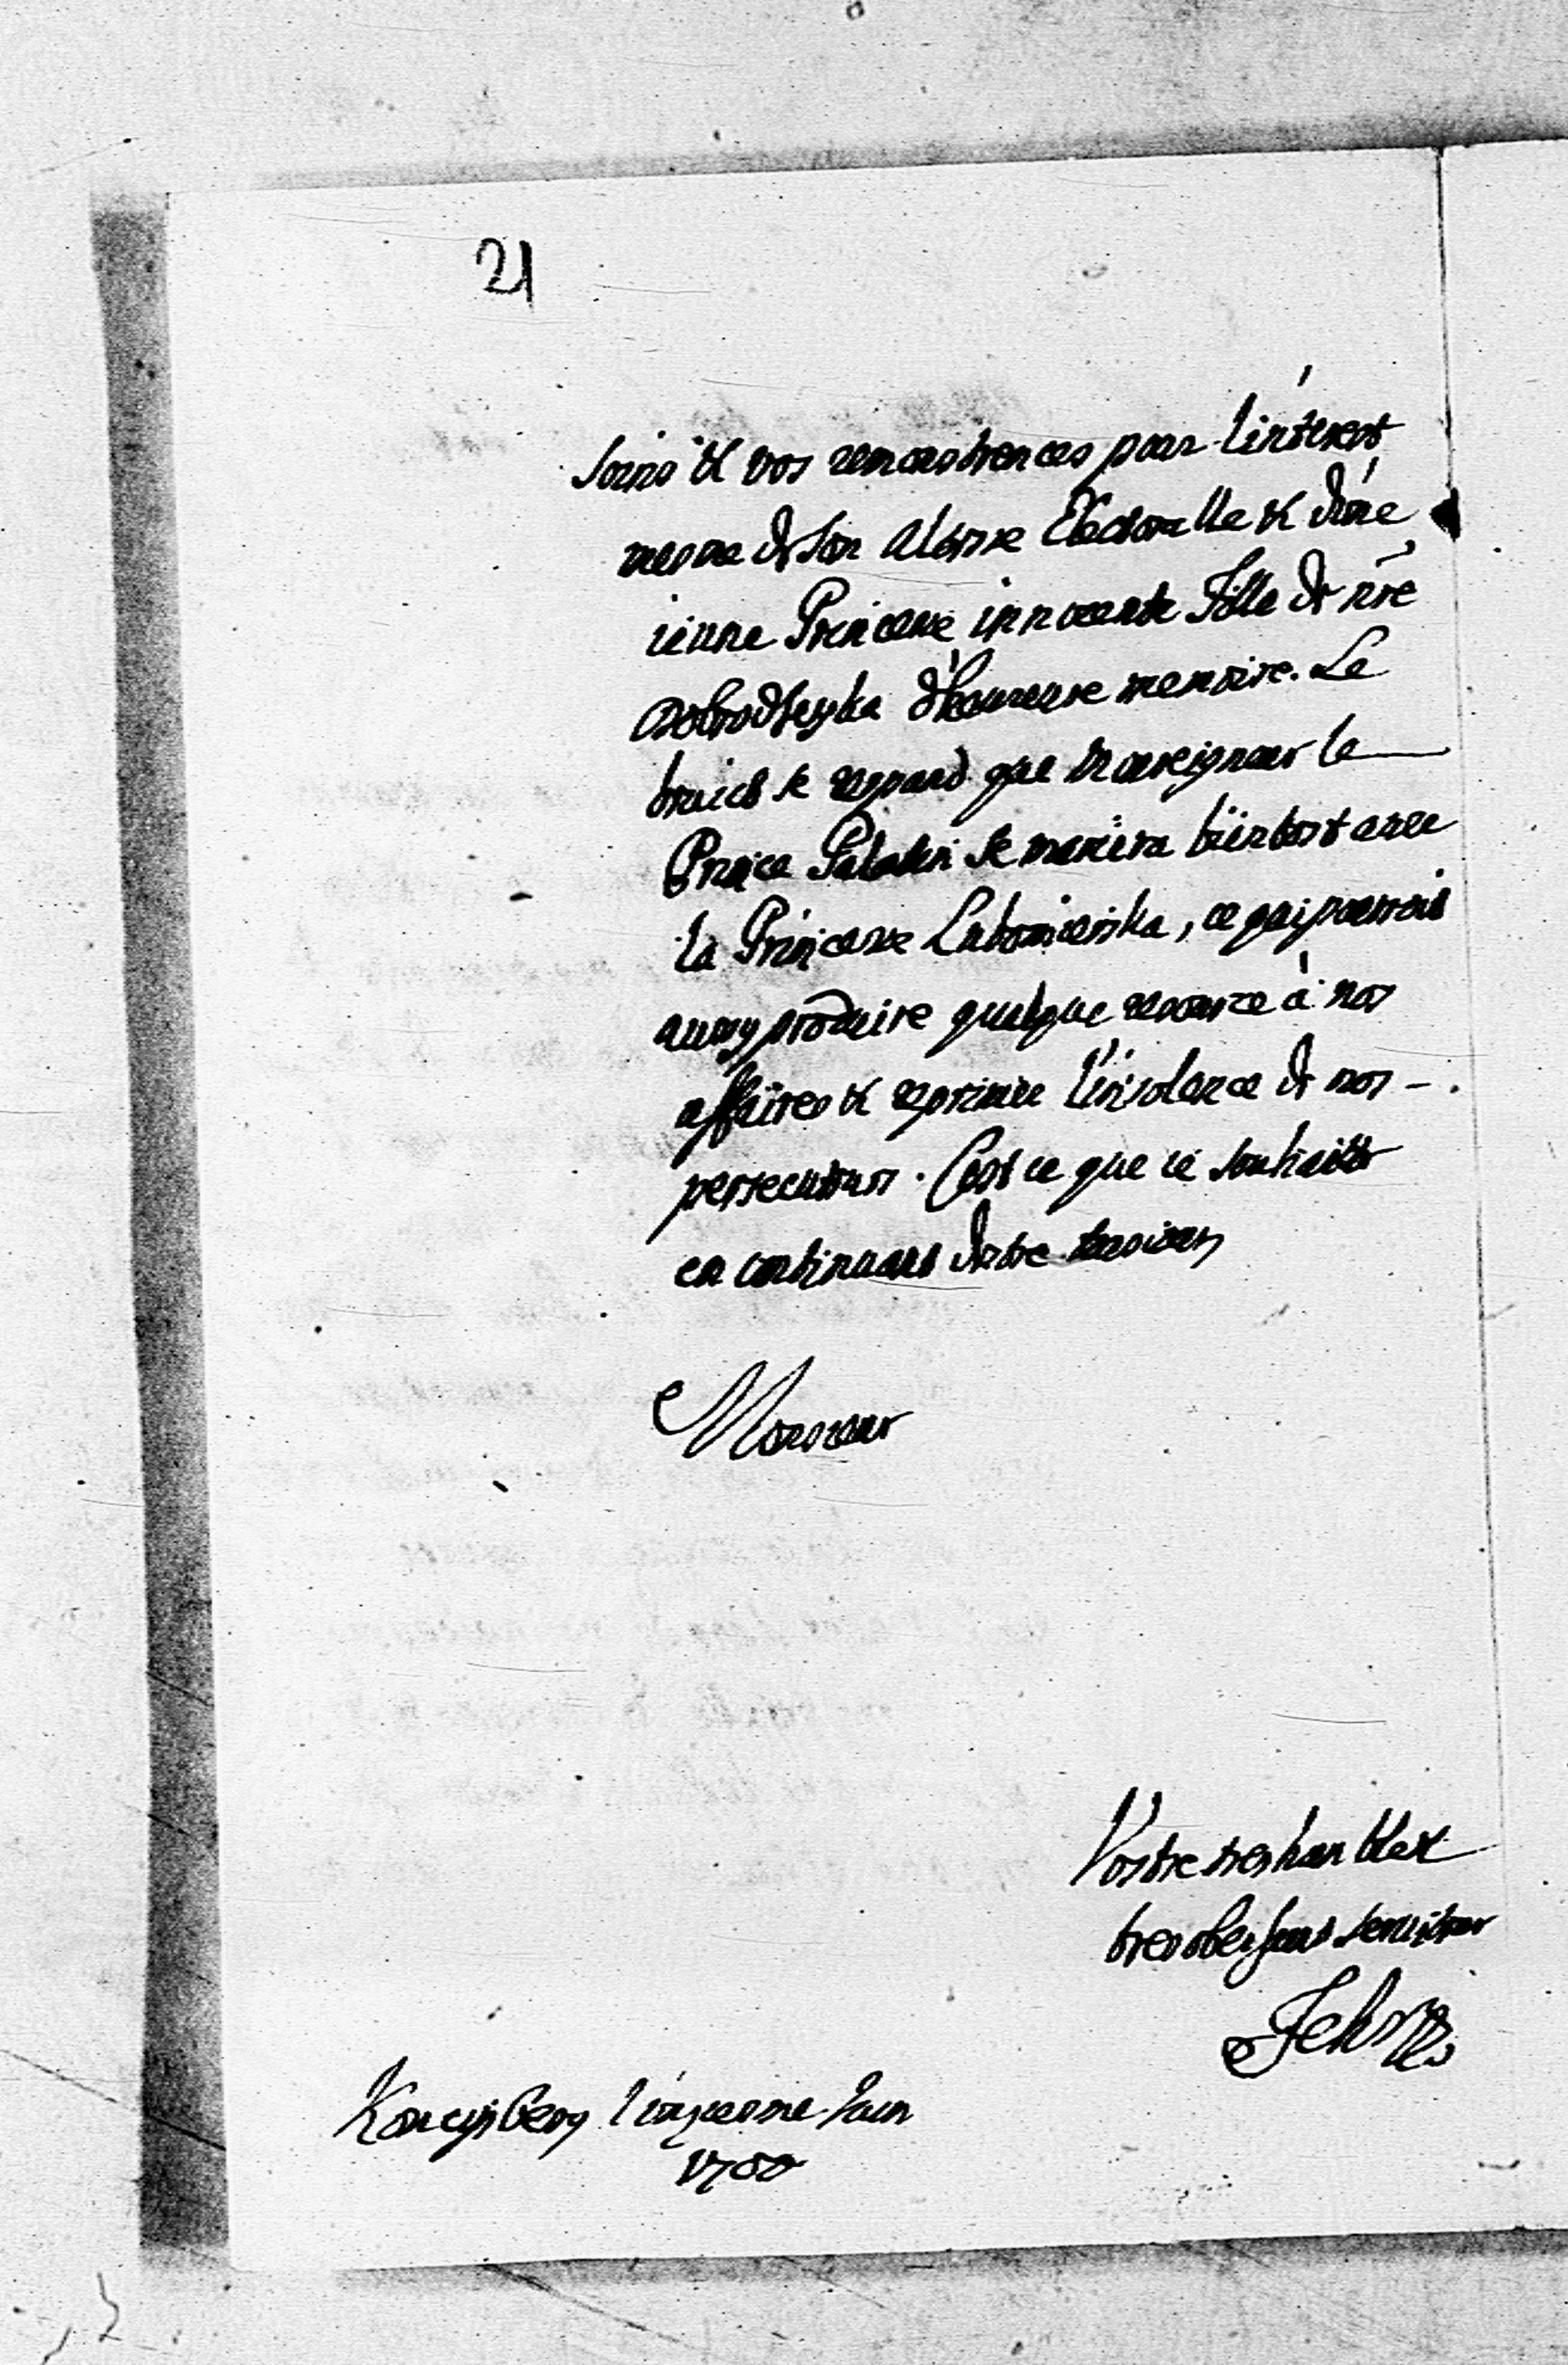 21
soins & vos remonstrences pour l'interest
mesme de son Altesse Electoralle & d'une
ieune Princesse innocente Fille de nrē
Dobrodseyka d'heureuse memoire. Le
bruict se repand que Monseigneur le
Prince Palatin se mariera bientost avec
la Princesse Lubomierska, ce qui pourrait
aussy produire quelque à nos
affaires & reprimer l'insolence de nos -
persecuteurs. C'est ce que ie souhaitte
en continuant d'estre tousiours
Monsieur
Vostre tres humble &
tres obeissant serviteur
Konigsberg Juin
1700